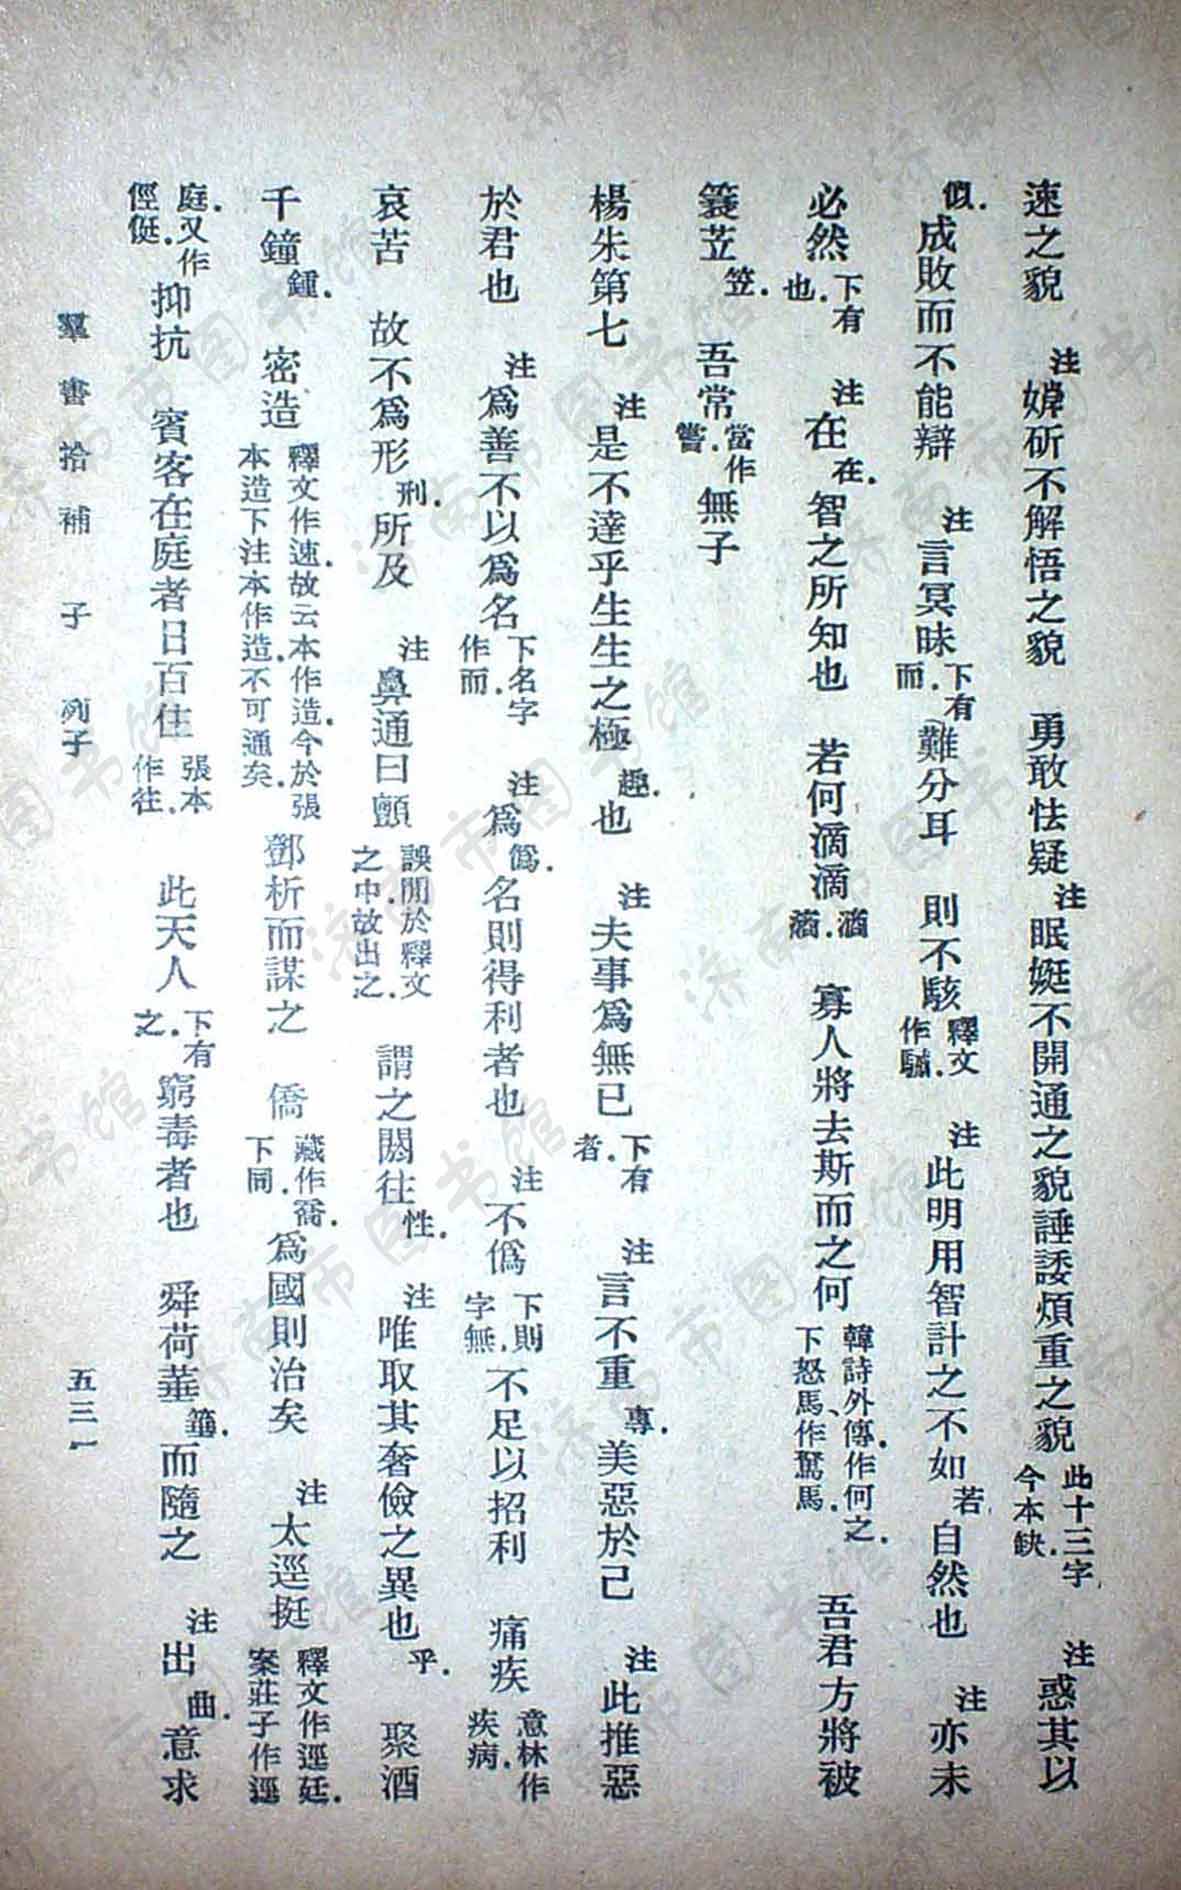 速之貌　注婩斫不解悟之貌　勇敢怯疑注眠娗不開通之貌諈諉煩重之貌此十三字今本缺．　注惑其以
佀．成敗而不能辯　注言冥昧下有而．難分耳　則不駭釋文作䮕．　注此明用智計之不如若自然也　注亦未
必然下有也．　注在在．智之所知也　若何滴滴滴滴．　寡人將去斯而之何韓詩外傳作何之．下怒馬作駑馬．　吾君方將被
簑苙笠．　吾常當作嘗．無子
楊朱第七　注是不達乎生生之極趣．也　注夫事爲無已下有者．　注言不重專．美惡於己　注此推惡
於君也　注爲善不以爲名下名字作而．　注爲僞．名則得利者也　注不僞下則字無．不足以招利　痛疾意林作疾病．
哀苦　故不爲形刑．所及　注鼻通曰顫誤閒於釋文之中故出之．　謂之閼往性．　注唯取其奢儉之異也乎．　聚酒
千鐘鍾．　密造釋文作速．故云本作造．今於張本造下注本作造．不可通矣．　鄧析而謀之　僑藏作喬．下同．爲國則治矣　注太逕挺釋文作逕廷．案莊子作逕
庭．又作俓侹．　抑抗　賓客在庭者日百住張本作往．　此天人下有之．窮毒者也　舜荷菙箠．而隨之　注出曲．意求
羣書拾補　子　列子　五三一